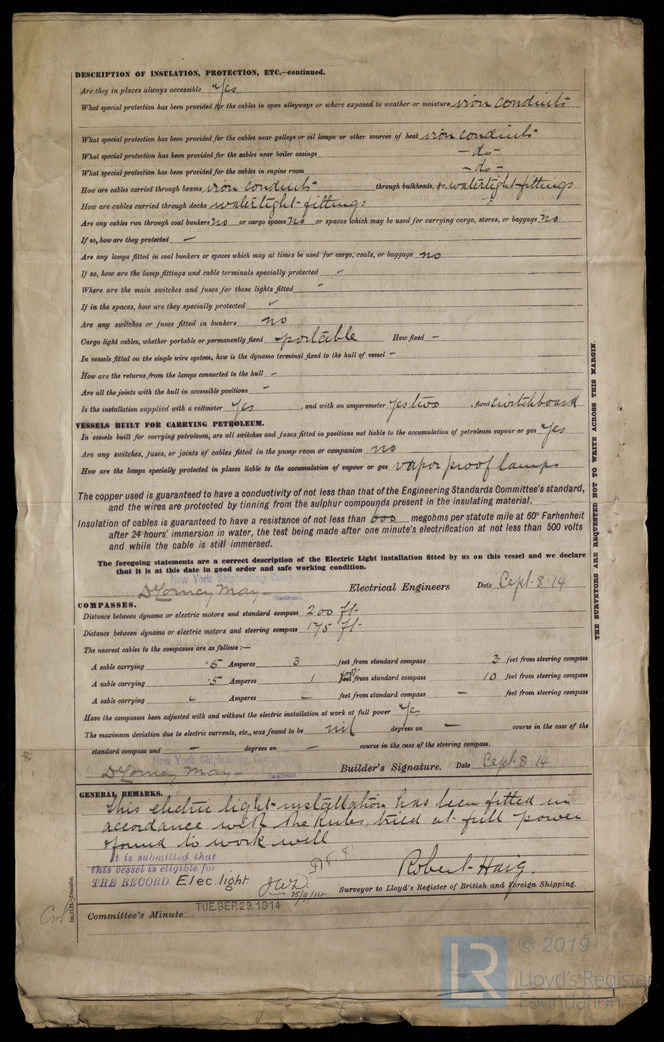 DESCRIPTION OF INSULATION, PROTECTION, ETC.—continued.
Are they in places always accessible Yes
What special protection has been provided for the cables in open alleyways or where exposed to weather or moisture iron conduits
What special protection has been provided for the cables near galleys or oil lamps or other sources of heat iron conduits
What special protection has been provided for the cables near boiler casings —do—
What special protection has been provided for the cables in engine room —do—
How are cables carried through beams iron conduits through bulkheads, &c. watertight fittings
How are cables carried through decks watertight fittings
Are any cables run through coal bunkers no or cargo spaces no or spaces which may be used for carrying cargo, stores, or baggage no
If so, how are they protected —
Are any lamps fitted in coal bunkers or spaces which may at times be used for cargo, coals, or baggage no
If so, how are the lamp fittings and cable terminals specially protected -
Where are the main switches and fuses for these lights fitted -
If in the spaces, how are they specially protected -
Are any switches or fuses fitted in bunkers no
Cargo light cables, whether portable or permanently fixed portable How fixed -
In vessels fitted on the single wire system, how is the dynamo terminal fixed to the hull of vessel -
How are the returns from the lamps connected to the hull -
Are all the joints with the hull in accessible positions -
Is the installation supplied with a voltmeter Yes , and with an amperemeter Yes two , fixed switchboard
VESSELS BUILT FOR CARRYING PETROLEUM.
In vessels built for carrying petroleum, are all switches and fuses fitted in positions not liable to the accumulation of petroleum vapour or gas Yes
Are any switches, fuses, or joints of cables fitted in the pump room or companion no
How are the lamps specially protected in places liable to the accumulation of vapour or gas vapor proof lamps
The copper used is guaranteed to have a conductivity of not less than that of the Engineering Standards Committee's standard,
and the wires are protected by tinning from the sulphur compounds present in the insulating material.
Insulation of cables is guaranteed to have a resistance of not less than 600 megohms per statute mile at 60° Farhenheit
after 24 hours' immersion in water, the test being made after one minute's electrification at not less than 500 volts
and while the cable is still immersed.
The foregoing statements are a correct description of the Electric Light installation fitted by us on this vessel and we declare
that it is at this date in good order and safe working condition.
New York Shipbuilding
Electrical Engineers Date Sept. 8. 14
COMPASSES.
Distance between dynamo or electric motors and standard compass 200 ft.
Distance between dynamo or electric motors and steering compass 175 ft.
The nearest cables to the compasses are as follows:—
A cable carrying .5 Amperes 3 feet from standard compass 3 feet from steering compass
A cable carrying .5 Amperes 1 feet from standard compass 10 feet from steering compass
A cable carrying - Amperes - feet from standard compass - feet from steering compass
Have the compasses been adjusted with and without the electric installation at work at full power Yes
The maximum deviation due to electric currents, etc., was found to be nil degrees on — course in the case of the
standard compass and — degrees on — course in the case of the steering compass.
New York Shipbuilding
Builder's Signature. Date Sept. 8. 14
GENERAL REMARKS.
This electric light installation has been fitted in
accordance with the Rules, tried at full power
& found to work well
It is submitted that
this vessel is eligible for
THE RECORD. Elec. light.
Robert Haig.
Surveyor to Lloyd's Register of British and Foreign Shipping.
Committee's Minute TUE. SEP. 29. 1914
THE SURVEYORS ARE REQUESTED NOT TO WRITE ACROSS THIS MARGIN.
LR
© 2019
Lloyd's Register
Foundation